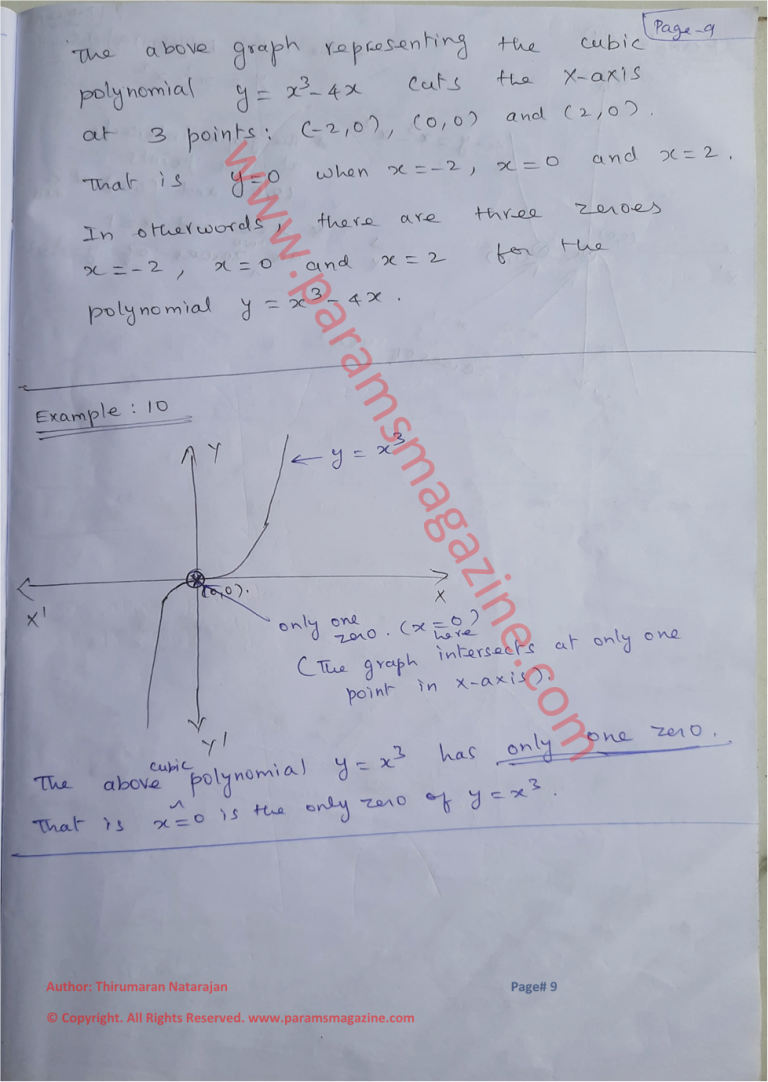 Page-9
The above graph representing the cubic
polynomial y = x³ - 4x cuts the X-axis
at 3 points: (-2,0), (0,0) and (2,0).
That is y=0 when x=-2, x=0 and x=2.
In otherwords, there are three zeroes
x=-2, x=0 and x=2 for the
polynomial y = x³ - 4x.
www.paramsmagazine.com
Example : 10
Y
← y = x³
(0,0).
X'
X
only one
zero. (x=0)
here
(The graph intersects at only one
point in x-axis).
Y'
cubic
The above polynomial y = x³ has only one zero.
That is x=0 is the only zero of y = x³.
Author: Thirumaran Natarajan
Page# 9
© Copyright. All Rights Reserved. www.paramsmagazine.com